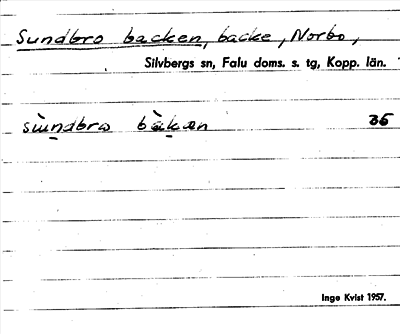 Sundbro backen, backe, Norbo,
Silvbergs sn, Falu doms. s. tg, Kopp. län.
sùndbrω bàkan 36
Inge Kvist 1957.